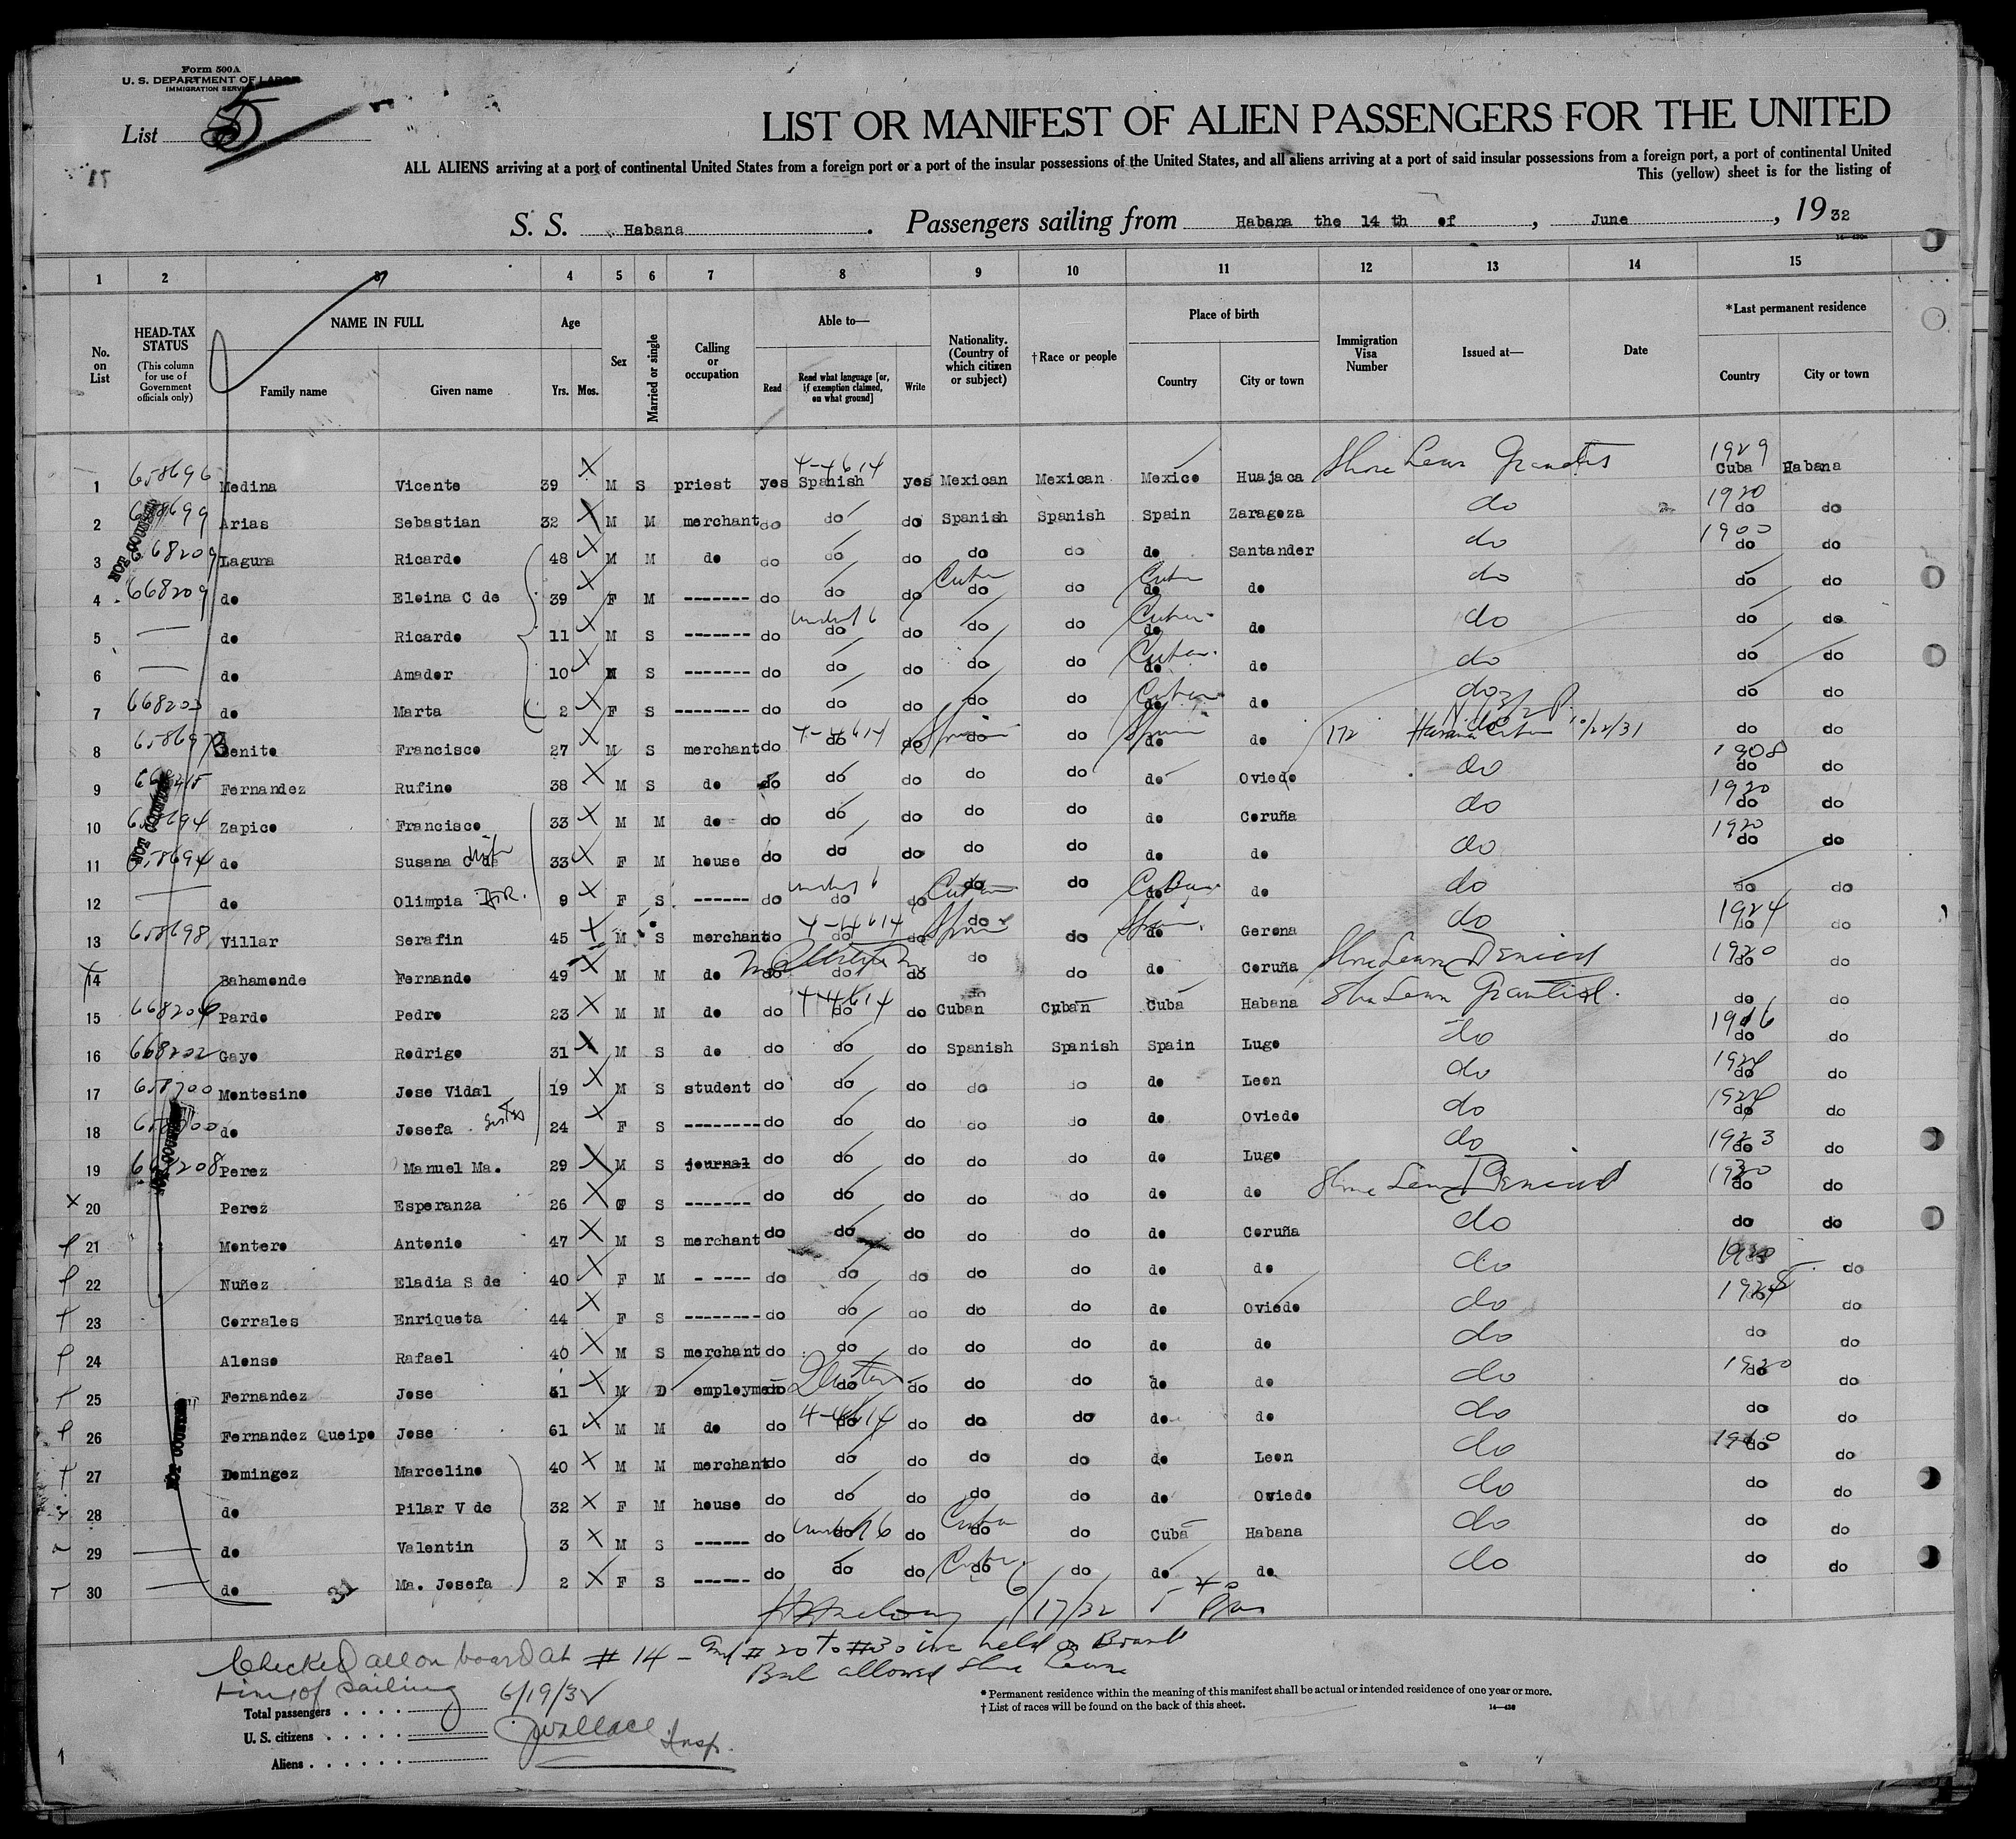 Form 500A
U. S. DEPARTMENT OF LABOR
IMMIGRATION SERVICE
List 5
LIST OR MANIFEST OF ALIEN PASSENGERS FOR THE UNITED
ALL ALIENS arriving at a port of continental United States from a foreign port or a port of the insular possessions of the United States, and all aliens arriving at a port of said insular possessions from a foreign port, a port of continental United
This (yellow) sheet is for the listing of
S. S. Habana. Passengers sailing from Habana the 14 th of, June, 1932
1 2 3 4 5 6 7 8 9 10 11 12 13 14 15
No. on List
HEAD-TAX STATUS (This column for use of Government officials only)
NAME IN FULL Family name Given name
Age Yrs. Mos.
Sex
Married or single
Calling or occupation
Able to— Read Read what language [or, if exemption claimed, on what ground] Write
Nationality. (Country of which citizen or subject)
†Race or people
Place of birth Country City or town
Immigration Visa Number
Issued at—
Date
*Last permanent residence Country City or town
1 658696 Medina Vicente 39 M S priest yes 4-4614 Spanish yes Mexican Mexican Mexico Huajaca Shore Leave Granted 1929 Cuba Habana
2 Arias Sebastian 32 M M merchant do do do Spanish Spanish Spain Zaragoza do 1920 do do
3 Laguna Ricardo 48 M M do do do do do do do Santander do 1900 do do
4 668209 do Eleina C de 39 F M ------- do do do Cuba do do Cuba do do do do do
5 do Ricardo 11 M S ------- do under 16 do do do do Cuba do do do do do
6 do Amador 10 M S ------- do do do do do Cuba do do do do do
7 668203 do Marta 2 F S -------- do do do do do Cuba do do do do do
8 Benito Francisco 27 M S merchant do 4-4614 do do Spain do do Spain do do 172 Havana Cuba 10/22/31 do do
9 Fernandez Rufino 38 M S do do do do do do do Oviedo do 1908 do do
10 Zapico Francisco 33 M M do do do do do do do Coruña do 1920 do do
11 658694 do Susana C de wife 33 F M house do do do do do do do do 1920 do do
12 do Olimpia 9 F S ------ do under 16 do do Cuba do do Cuba do do do do do
13 658698 Villar Serafin 45 M S merchant do 4-4614 do do Spain do do Spain do Gerona do 1924 do do
14 Bahamonde Fernando 49 M M do do do do do do do Coruña Shore Leave Denied 1920 do do
15 668206 Pardo Pedro 23 M M do do 4-4614 do do Cuban Cuban Cuba Habana Shore Leave Granted do do
16 668202 Gayo Rodrigo 31 M S do do do do Spanish Spanish Spain Lugo do 1916 do do
17 658700 Montesino Jose Vidal 19 M S student do do do do do do Leon do do do
18 do Josefa sister 24 F S -------- do do do do do do Oviedo do do do
19 668208 Perez Manuel Ma. 29 M S journal do do do do do do Lugo do 1923 do do
20 Perez Esperanza 26 F S ------- do do do do do do do Shore Leave Denied 1920 do do
21 Montero Antonio 47 M S merchant do do do do do do Coruña do do do
22 Nuñez Eladia S de 40 F M - ---- do do do do do do do do do
23 Corrales Enriqueta 44 F S -------- do do do do do do Oviedo do do
24 Alonso Rafael 40 M S merchant do do do do do do do do do do
25 Fernandez Jose 51 M D do do do do do do do do 1920 do do
26 Fernandez Queipo Jose 61 M M do do 4-4614 do do do do do do do do do
27 Domingez Marcelino 40 M M merchant do do do do do do Leon do do do
28 do Pilar V de 32 F M house do do do do do do Oviedo do do do
29 do Valentin 3 M S ------ do under 16 do do Cuba do do Cuba Habana do do do
30 do Ma. Josefa 2 F S ------ do do do Cuba do do do do do do do
NOT COUNTED
NOT COUNTED
NOT COUNTED
NOT COUNTED
31
6/17/32
Checked all on board at # 14 - and # 20 to #30 inc held on Board
time of sailing 6/19/32
Total passengers
U. S. citizens
Aliens
Wallace Insp.
* Permanent residence within the meaning of this manifest shall be actual or intended residence of one year or more.
† List of races will be found on the back of this sheet.